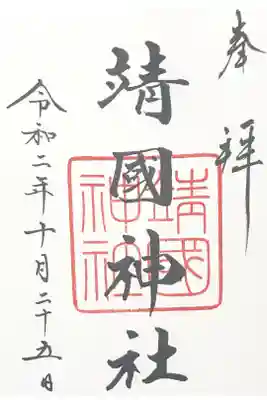 奉拝
靖國神社
靖国神社
令和二年十月二十五日